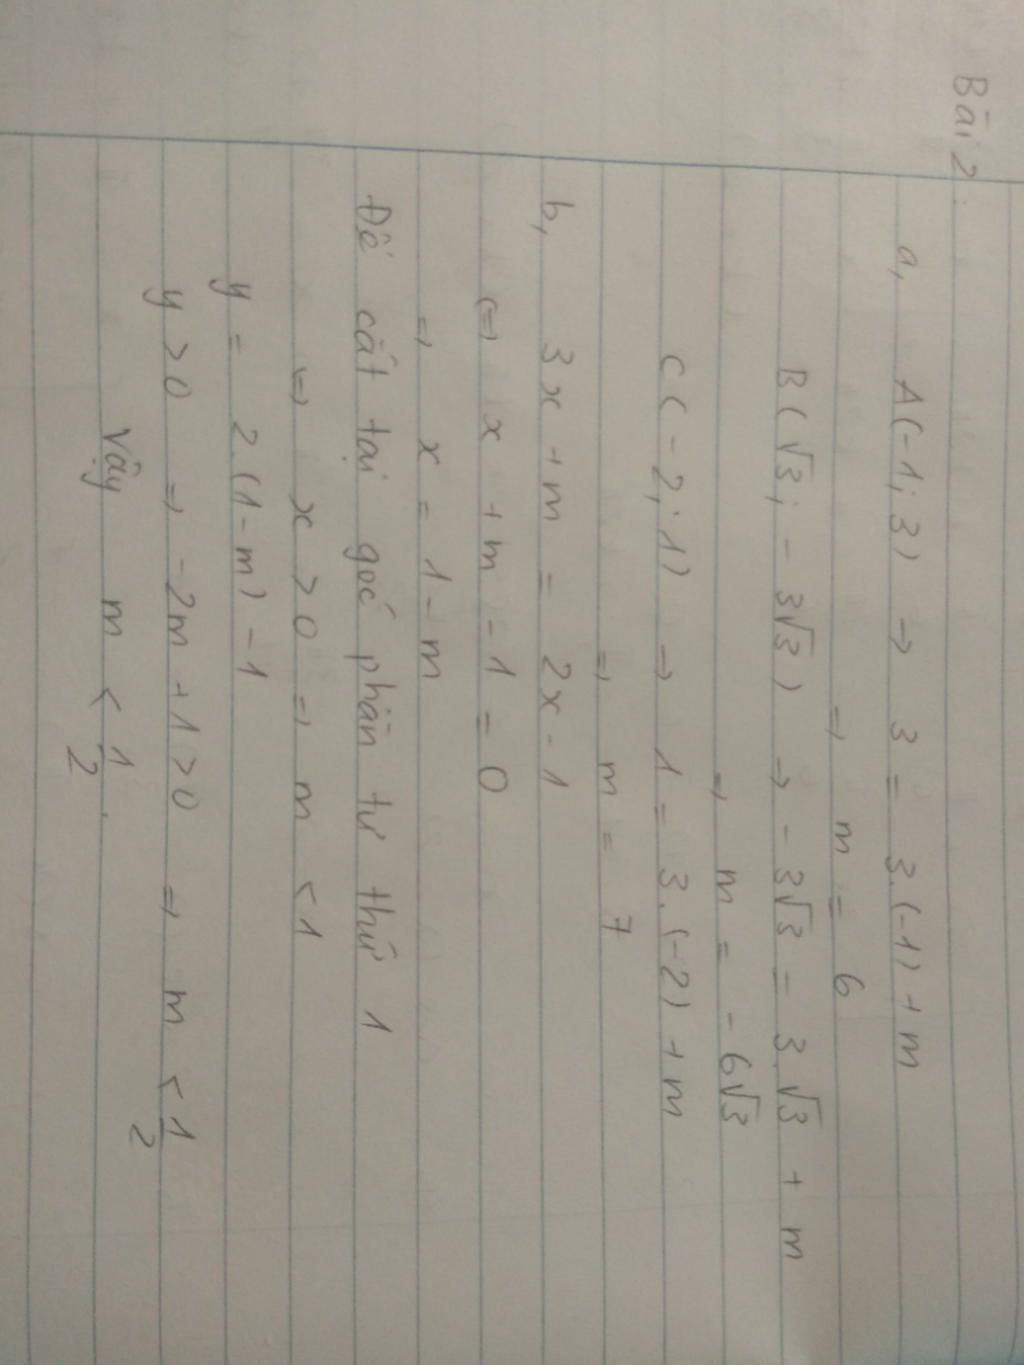 Bài 2:
a, A(-1; 3) → 3 = 3.(-1) + m
⇒ m = 6
B(√3; -3√3) → -3√3 = 3.√3 + m
⇒ m = -6√3
C(-2; 1) → 1 = 3.(-2) + m
⇒ m = 7
b, 3x + m = 2x - 1
⇔ x + m - 1 = 0
⇒ x = 1 - m
Để cắt tại góc phần tư thứ 1
⇔ x > 0 ⇒ m < 1
y = 2.(1-m) - 1
y > 0 ⇒ -2m + 1 > 0 ⇒ m < 1/2
Vậy m < 1/2.